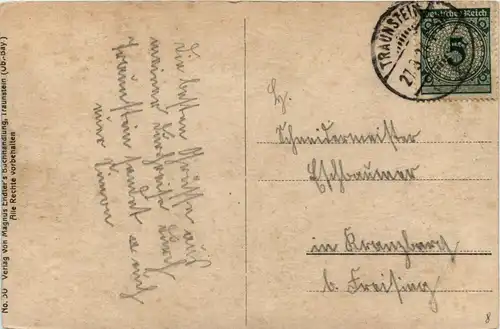 No. 50 Verlag von Magnus Endter's Buchhandlung, Traunstein (Ob.-bay.)
Alle Rechte vorbehalten
Die besten Grüsse auf
meiner Durchreise durch
Traunstein sendet euch
TRAUNSTEIN
Deutsches Reich
5
H.
Schneidermeister
Eschbaumer
in Kranzberg
b. Freising
8